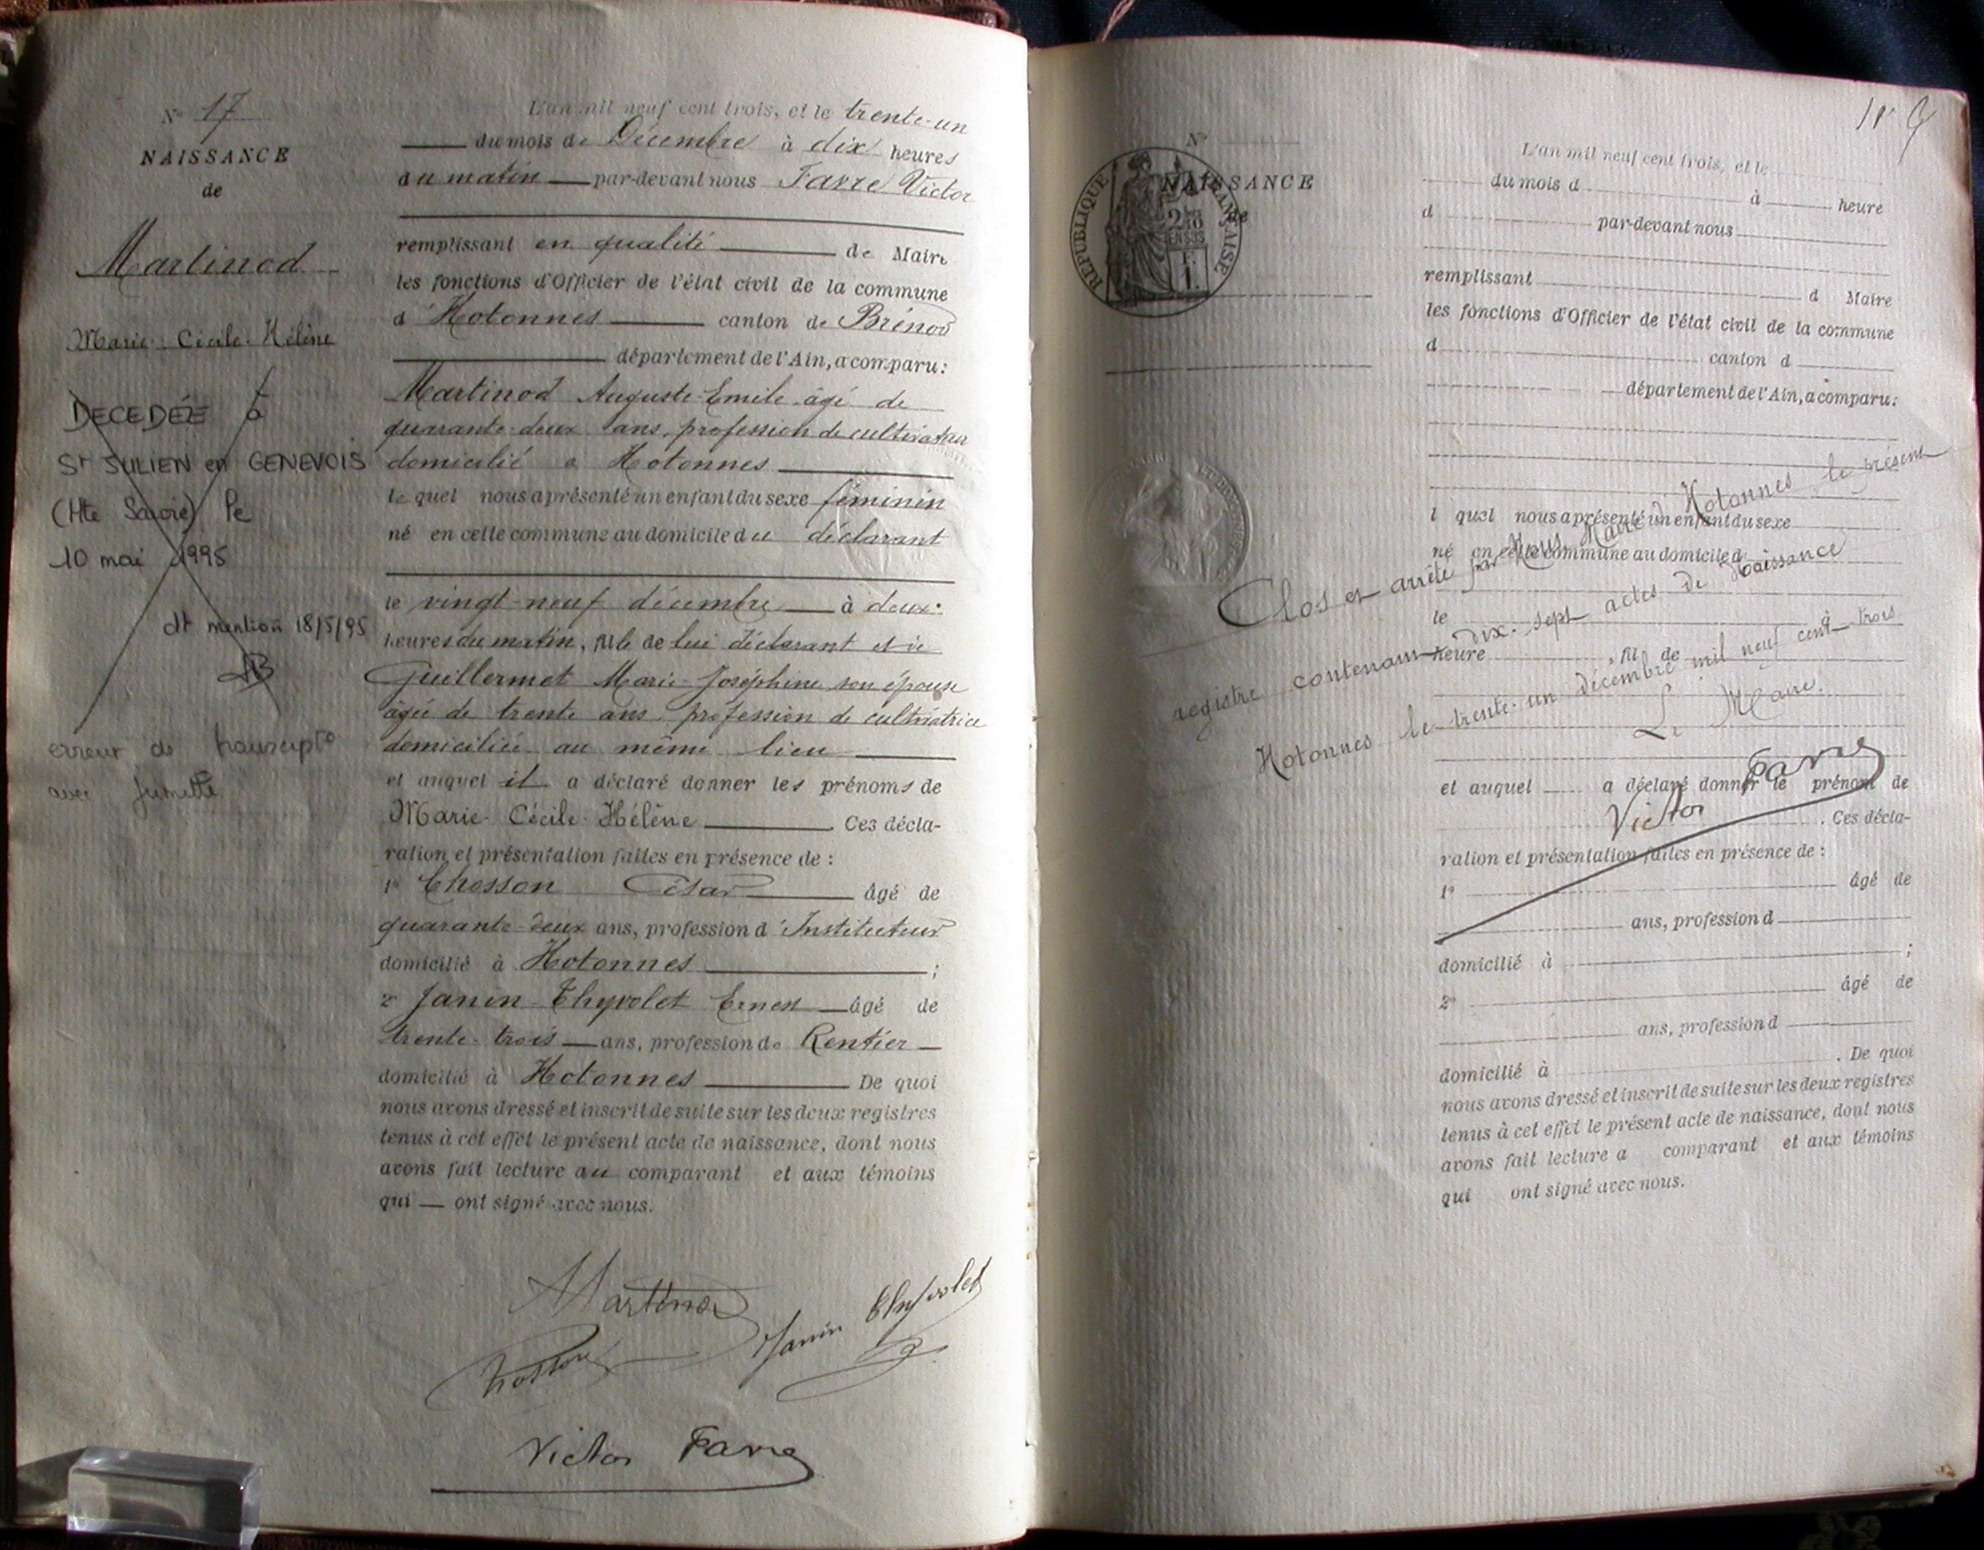 N° 17
NAISSANCE
de
Martinod
Marie-Cécile-Hélène
DECEDÉE à
St JULIEN en GENEVOIS
(Hte Savoie) le
10 mai 1995
dt mention 18/5/95
erreur de transcript°
avec jumelle
L'an mil neuf cent trois, et le trente-un
du mois de Décembre à dix heures
du matin par-devant nous Favre Victor
remplissant en qualité de Maire
les fonctions d'Officier de l'état civil de la commune
d'Hotonnes canton de Brénod
département de l'Ain, a comparu:
Martinod Auguste-Emile âgé de
quarante-deux ans, profession de cultivateur
domicilié à Hotonnes
lequel nous a présenté un enfant du sexe féminin
né en cette commune au domicile du déclarant
le vingt-neuf décembre à deux
heures du matin, fille de lui déclarant et de
Guillermet Marie-Joséphine son épouse
âgée de trente ans, profession de cultivatrice
domiciliée au même lieu
et auquel il a déclaré donner les prénoms de
Marie-Cécile-Hélène. Ces décla-
ration et présentation faites en présence de :
1° Chosson César âgé de
quarante-deux ans, profession d'Instituteur
domicilié à Hotonnes ;
2° Janin-Thyvolet Ernest âgé de
trente-trois ans, profession de Rentier
domicilié à Hotonnes De quoi
nous avons dressé et inscrit de suite sur les deux registres
tenus à cet effet le présent acte de naissance, dont nous
avons fait lecture au comparant et aux témoins
qui ont signé avec nous.
Martinod
Chosson
Janin Thyvolet
Victor Favre
N°
NAISSANCE
de
REPUBLIQUE FRANÇAISE
2/10
EN SUS
L'an mil neuf cent trois, et le
du mois d à heure
d par-devant nous
remplissant d Maire
les fonctions d'Officier de l'état civil de la commune
d canton d
département de l'Ain, a comparu:
l quel nous a présenté un enfant du sexe
né en cette commune au domicile d
le à
heure , fil de
et auquel a déclaré donner le prénom de
. Ces décla-
ration et présentation faites en présence de :
1° âgé de
ans, profession d
domicilié à ;
2° âgé de
ans, profession d
domicilié à . De quoi
nous avons dressé et inscrit de suite sur les deux registres
tenus à cet effet le présent acte de naissance, dont nous
avons fait lecture a comparant et aux témoins
qui ont signé avec nous.
Clos et arrêté par Nous Maire d'Hotonnes le présent
registre contenant dix-sept actes de Naissance
Hotonnes le trente-un décembre mil neuf cent trois
Le Maire.
Favre
Victor